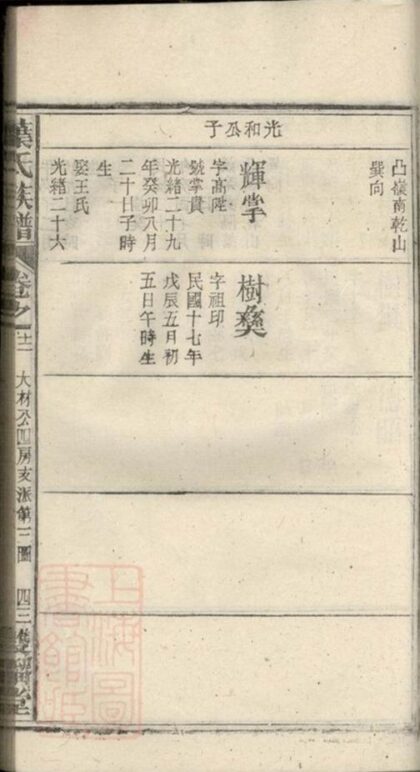 凸嶺南乾山
巽向
光和公子
輝掌
字高陞
號掌貴
光緒二十九
年癸卯八月
二十日子時
生
娶王氏
光緒二十六
樹彝
字祖印
民國十七年
戊辰五月初
五日午時生
葉氏族譜
卷之十二
大材公四房亥派第三圖
四三
上海圖
書館藏